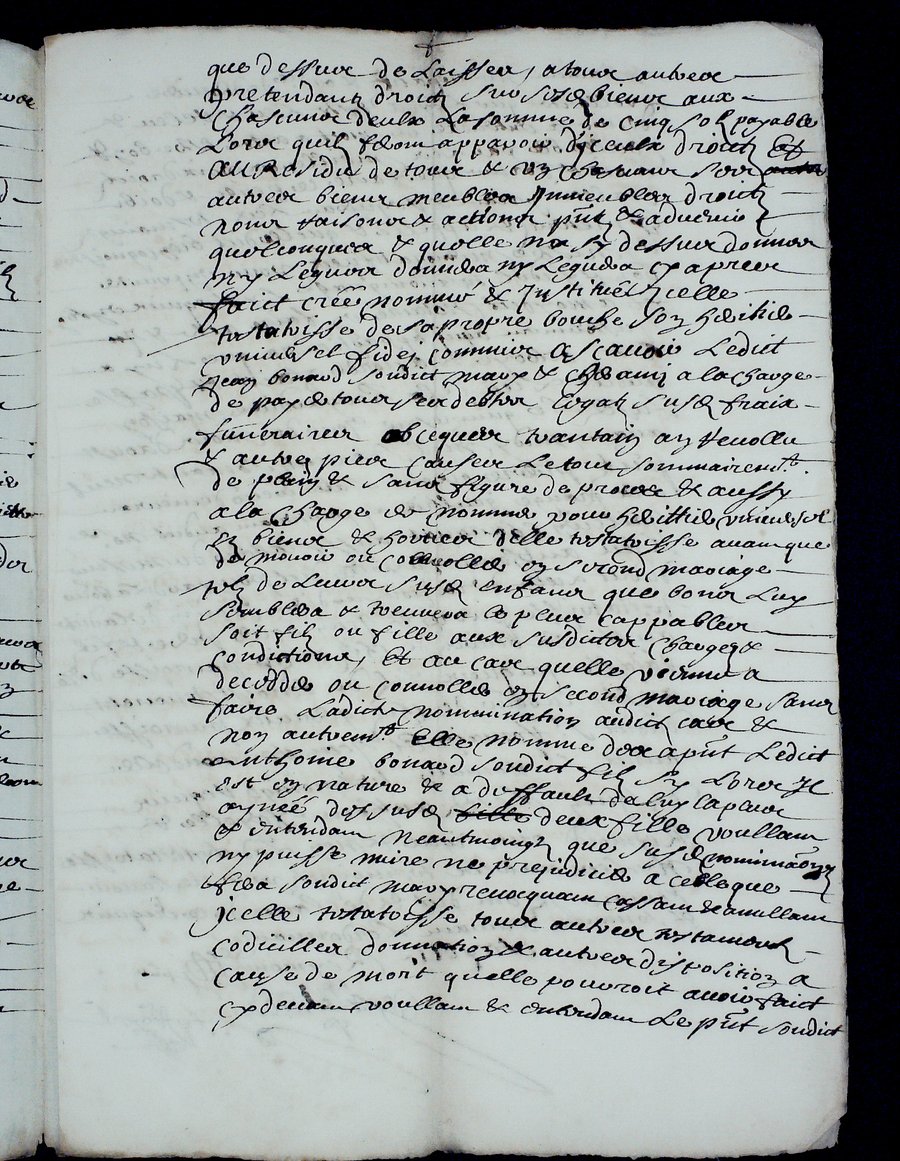 que dessus de Laisser, a tous autres
pretendantz droictz sur sesd biens aux
Chascuns deulx La somme de cinq solz payable
Lors quilz feront apparoir dyceulx droictz Et
Au Residu de tous & ungs Chascuns ses
autres biens meubles Immeubles droictz
noms raisons & actions pntz & advenir
quelconques & quelle na sy dessus donnes
ny Legues donnera ny Leguera cy apres
faict creé nommé & Institué Icelle
testatrisse de sa propre bouche son heritier
universel fidej commis a scavoir Ledict
Jean bonaud sondict mary & a la charge
de payer tous ses debtes legatz susd fraix
funeraires obceques trantain an revollu
& autres pies causes Le tout sommairemt
de plain & sans figure de proces & aussy
a la charge de nommer pour herittier universel
en biens & hoiries delle testatrisse avant que
de mourir ou convoller en second mariage
tel de Leurs susd enfans que bon Luy
semblera & treuvera le plus cappable
soit filz ou fille aux susdictes charges &
condictions, Et au cas quelle vienne a
decedder ou convoller en second mariage sans
faire Ladicte nommination audict cas &
non autremt Elle nomme des a pnt Ledict
anthoine bonaud sondict filz sy Lors Il
est en nature & a deffault de luy la plus
aynée des susd deux filles voullant
& entendant neantmoingz que susd nominaon
ny puisse nuire ne prejudicier a celle que
fera sondict mary revocquant cassant & anullant
Icelle testatrisse tous autres testamentz
codicilles donnation & autres disposition a
cause de mort quelle pourroit avoir faict
cy devant voullant & entendant Le pnt sondict